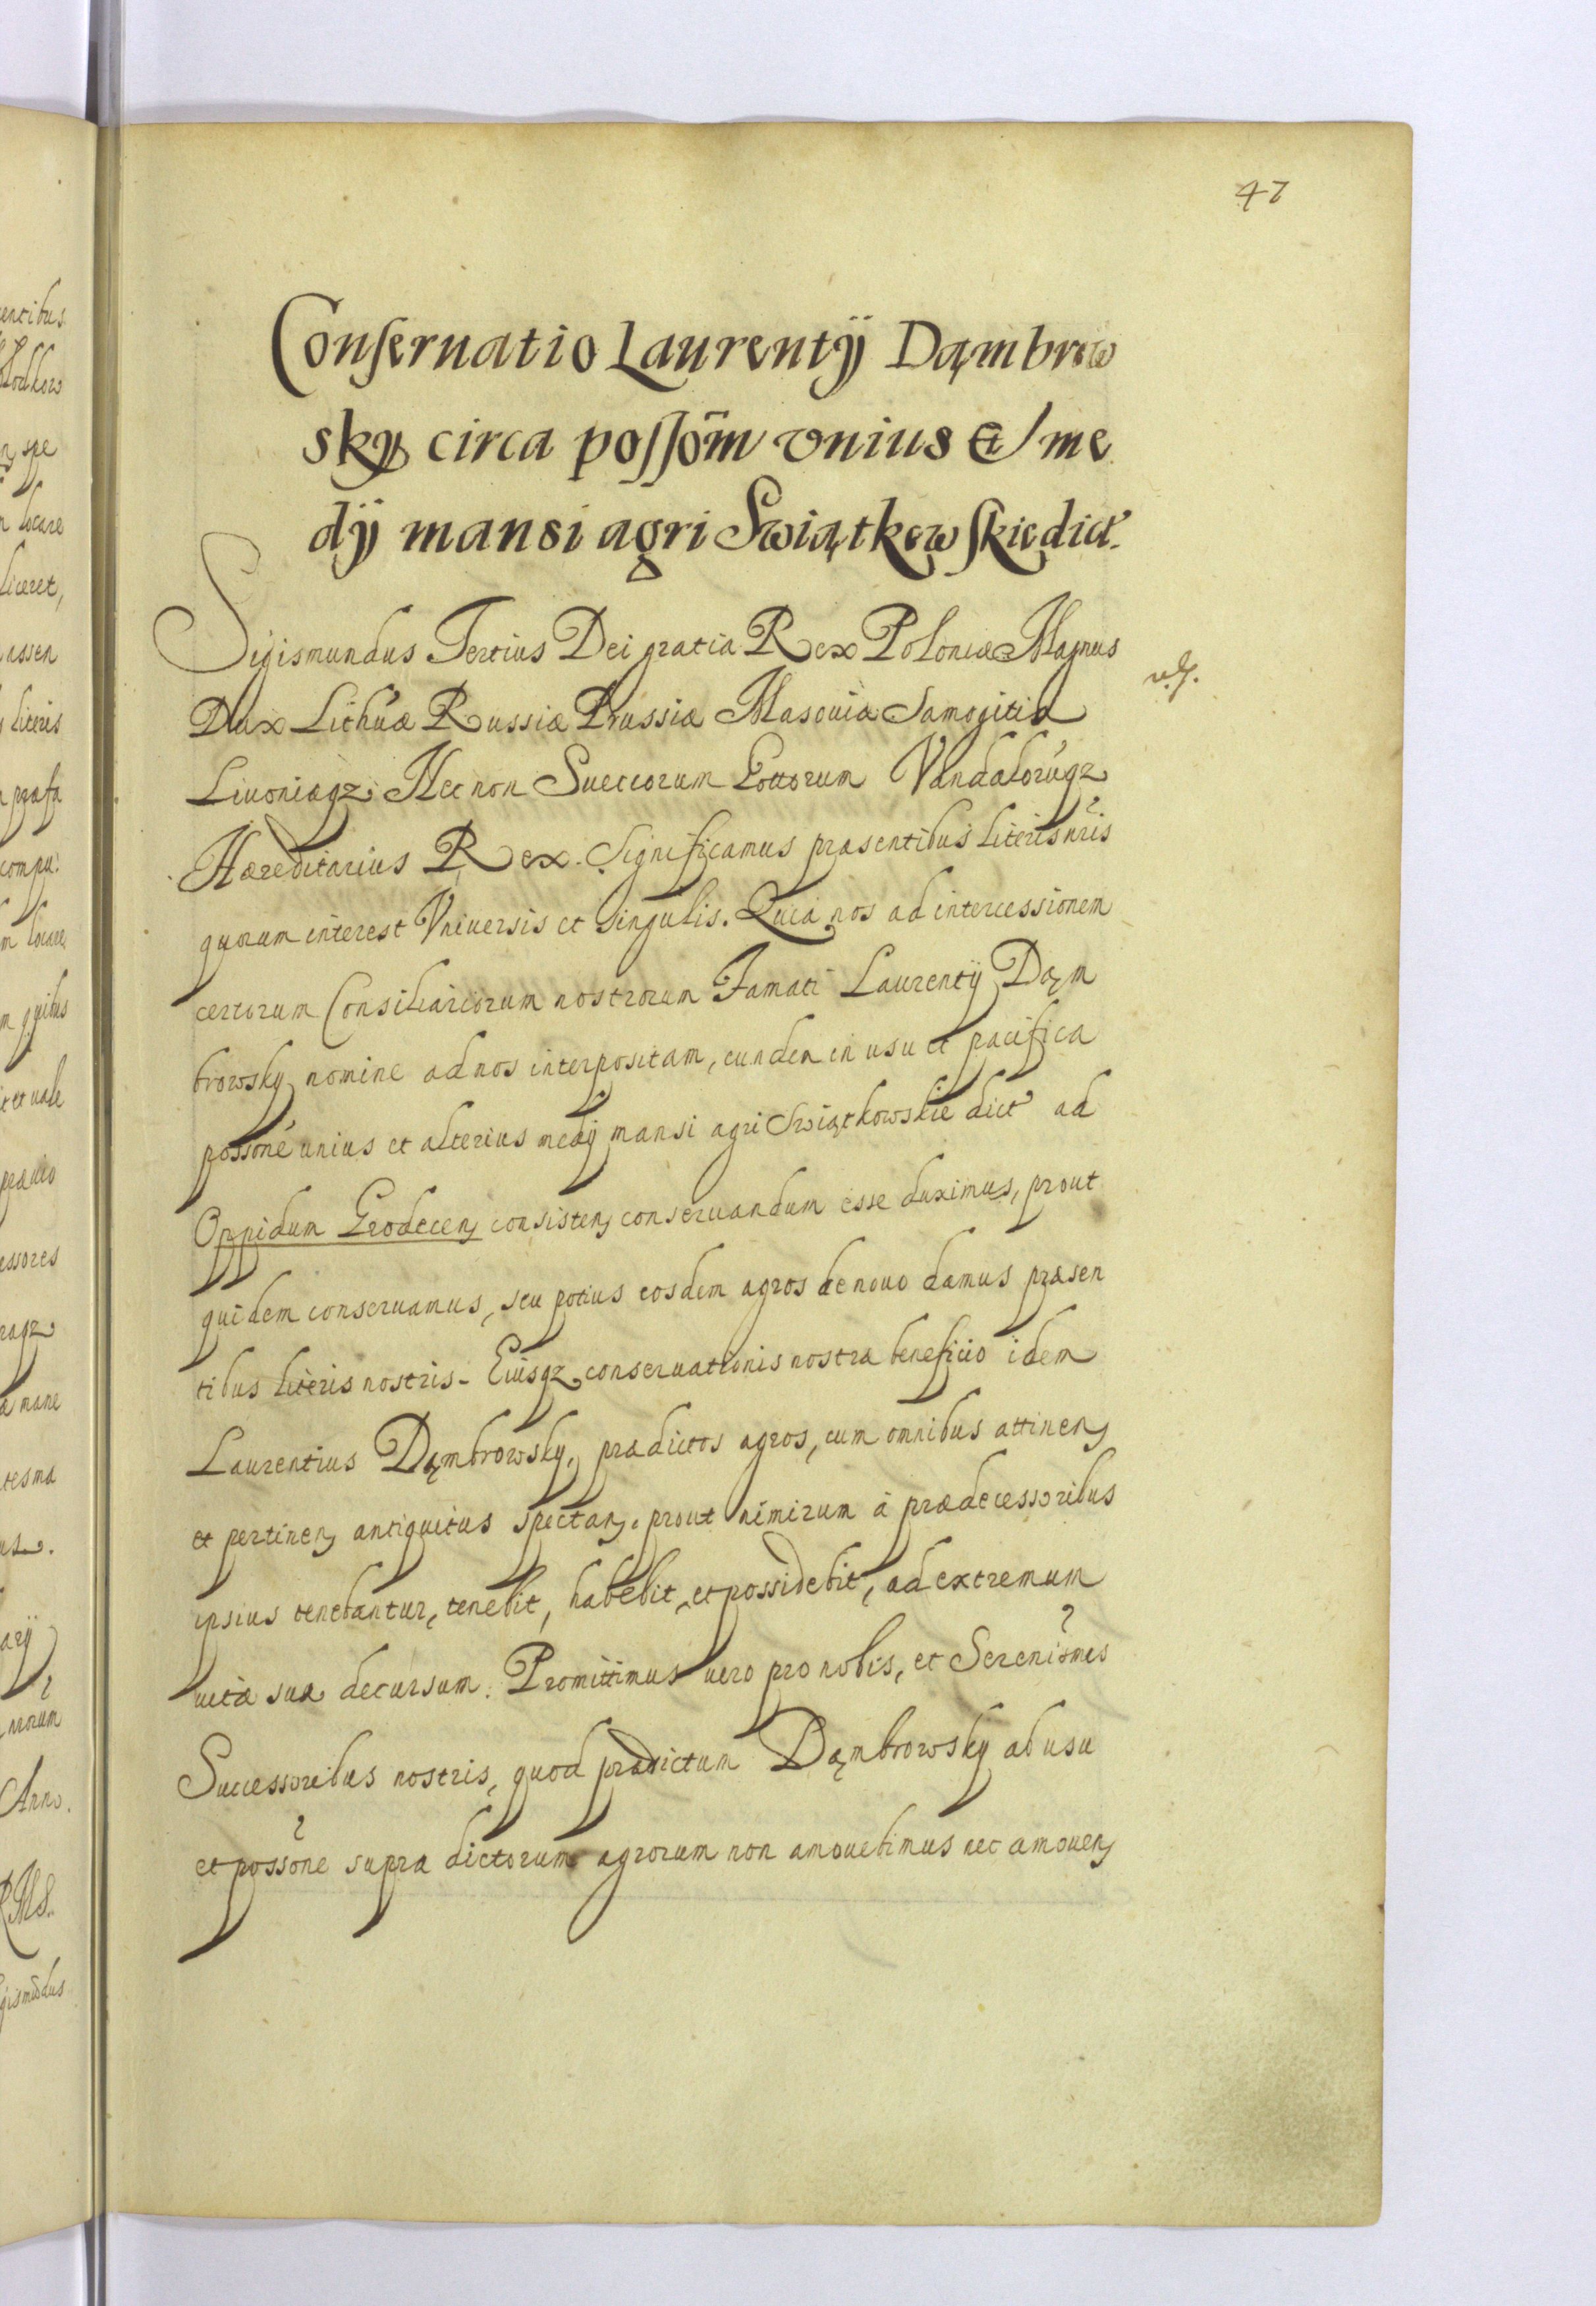 47
Conseruatio Laurentÿ Dąmbrow
sky circa possõm vnius et me
dÿ mansi agri Swiątkowskie dict.
Sigismundus Tertius Dei gratia Rex Poloniæ Magnus
Dux Lithúæ Russiæ Prussiæ Masouiæ Samogitiæ
Liuoniæqz, Nec non Sueccorum Gottorum Vandalorúqz
Hæreditarius Rex. Significamus præsentibus literis nr̃is
quorum interest Vniuersis et singulis. Quia nos ad intercessionem
certorum Consiliariorum nostrorum Famati Laurentÿ Dąm
browsky nomine ad nos interpositam, eundem in usu et pacifica
possoné unius et alterius medÿ mansi agri Swiątkowskie dict ad
Oppidum Grodecen consisten conseruandum esse duximus, prout
quidem conseruamus, seu potius eosdem agros de nouo damus præsen
tibus literis nostris. Eiusqz conseruationis nostræ beneficio idem
Laurentius Dąmbrowsky, prædictos agros, cum omnibus attinen
et pertinen antiquitus spectan, prout nimirum à prædecessoribus
ipsius tenebantur, tenebit, habebit, et possidebit, ad extremum
uitæ suæ decursum. Promittimus uero pro nobis, et Serenis̃mis
Successoribus nostris, quod prædictum Dąmbrowsky ab usu
et poss̃one supra dictorum agrorum non amouebimus nec amouen
entibus
spe
locare
liceret,
assen
literis
præfa
compa:
locare
quibus
et uale
essores
mane
arÿ
Anno.